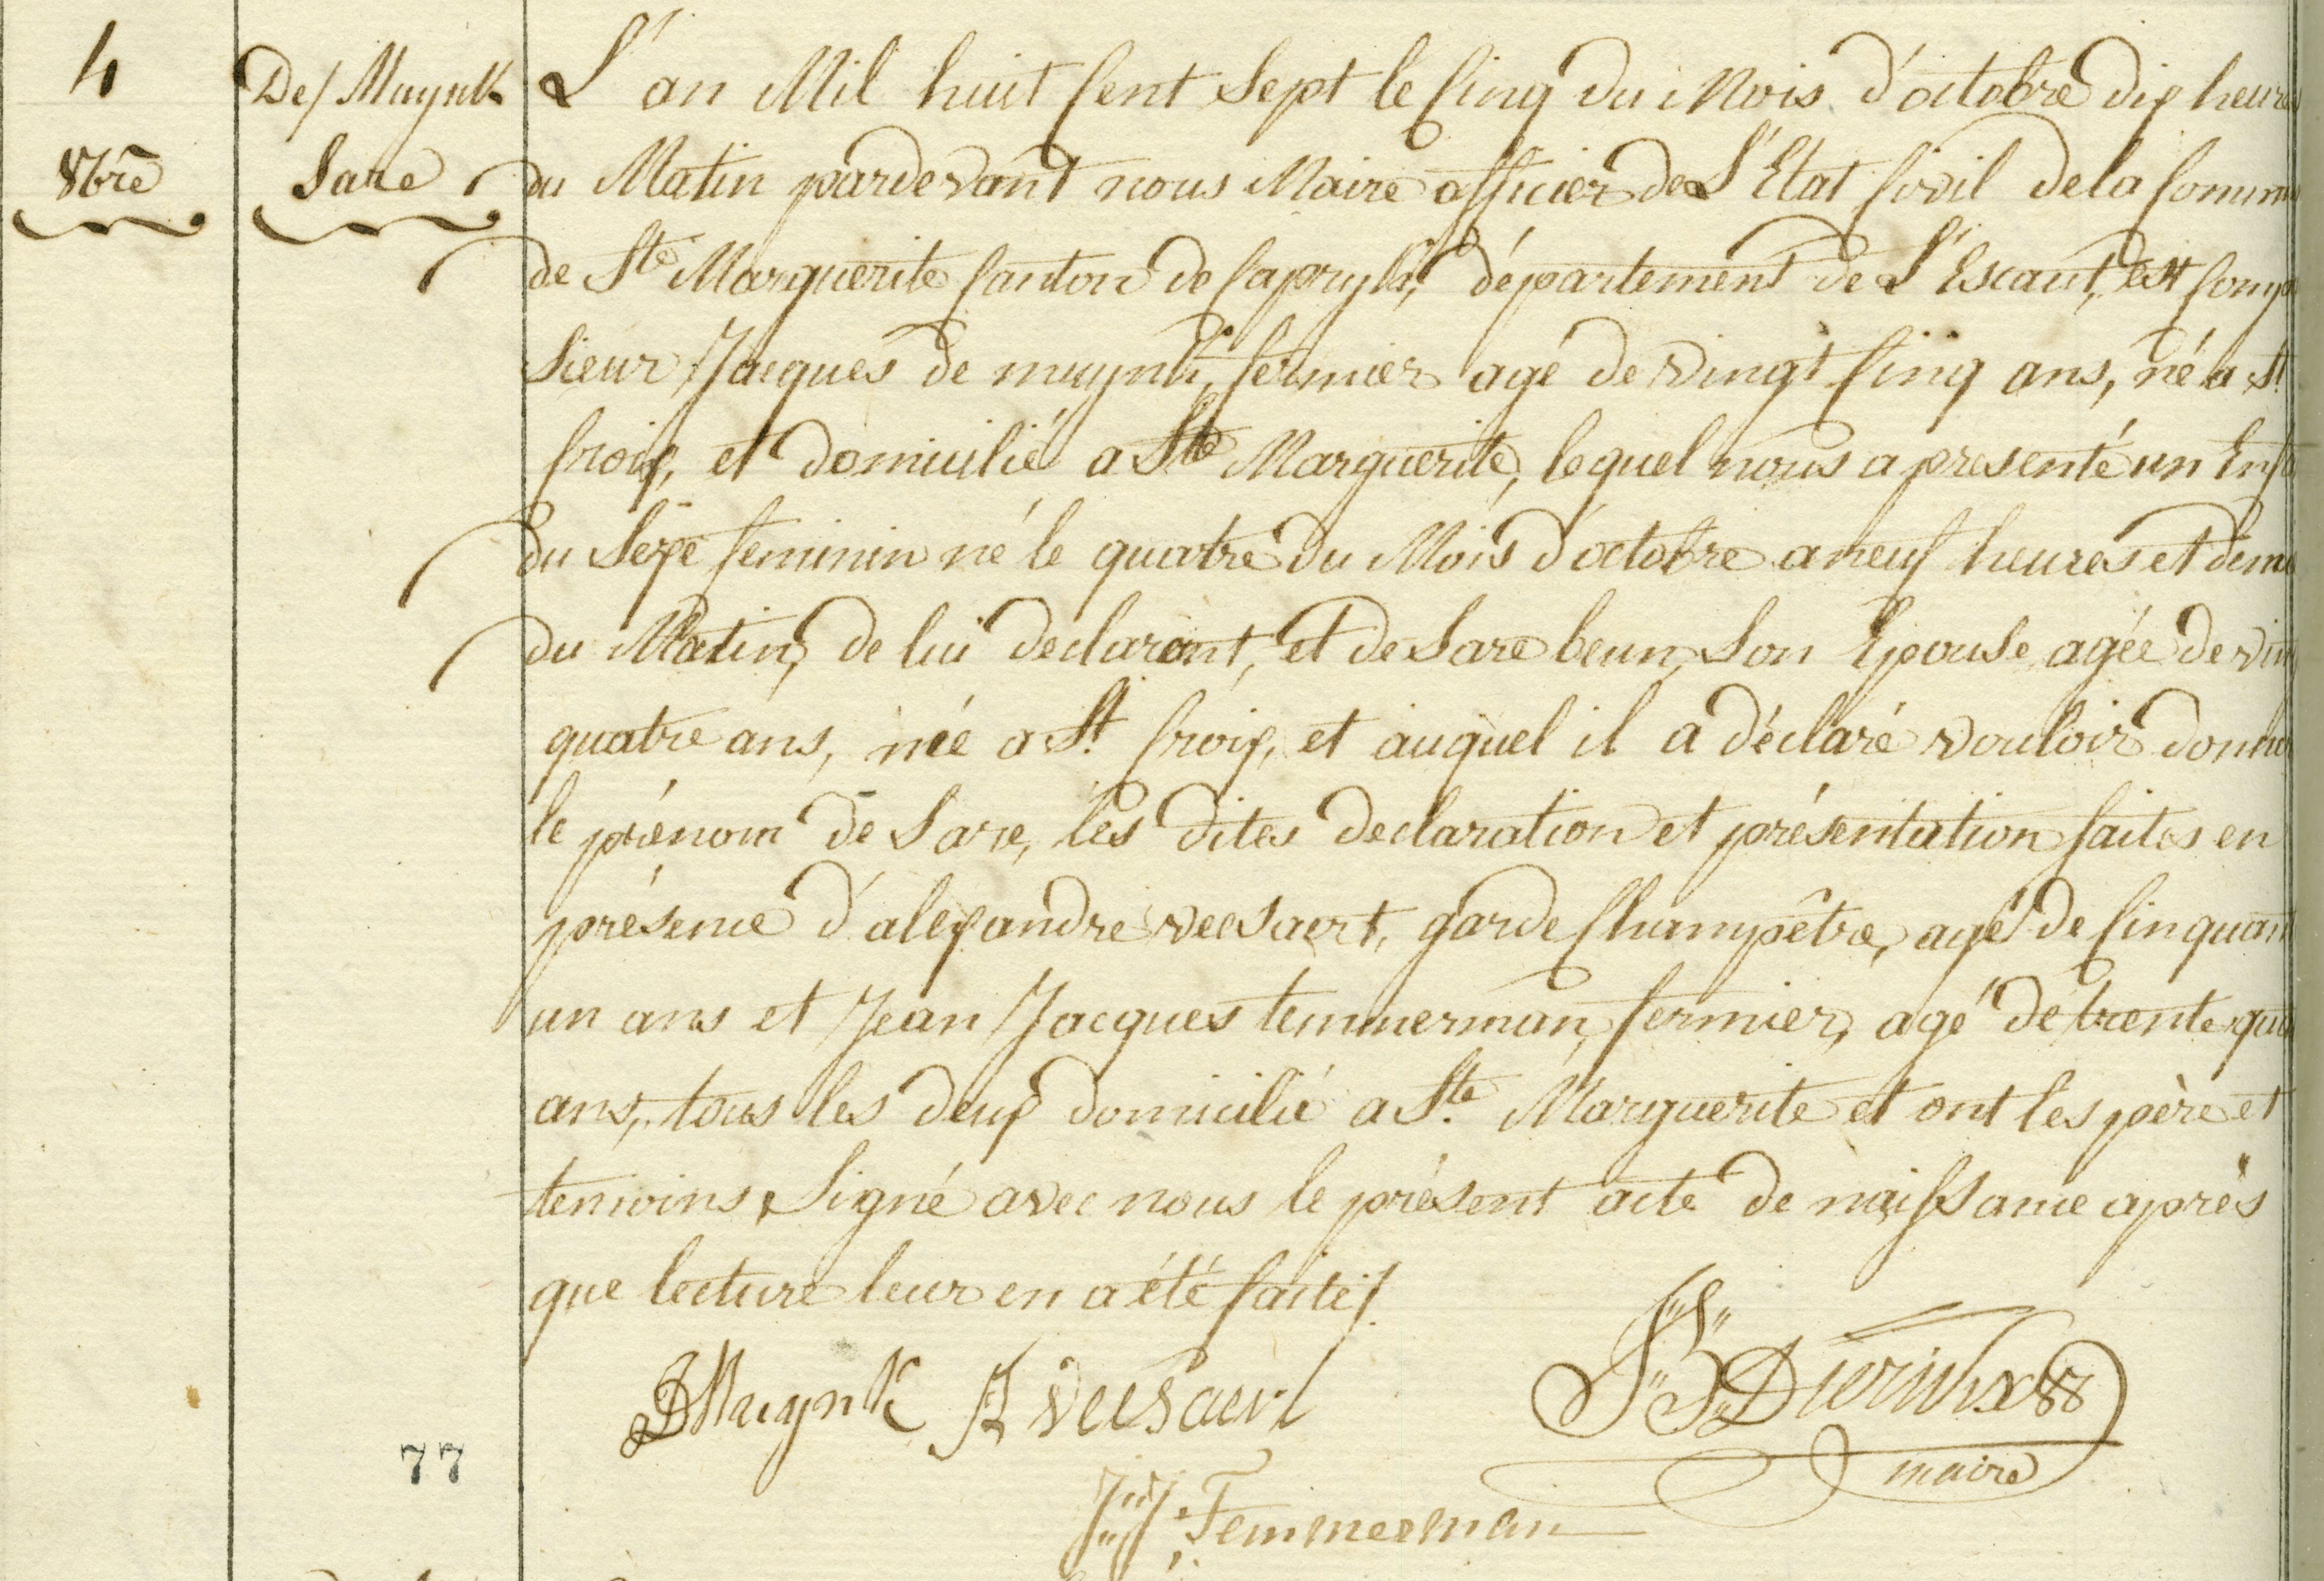 4
8bre
De/ Muynk
Sare
L'an Mil huit Cent Sept le Cinq du Mois d'octobre dix heures
du Matin pardevant nous Maire officier de L'Etat Civil dela Commu
de Ste Marguerite Canton de Capryke, département de L'Escaut, est Comp
Sieur Jacques de muynk, fermier agé de vingt Cinq ans, né a St
Croix, et domicilié a Ste Marguerite, lequel nous a presenté un Enfa
du Sexe feminin né le quatre du Mois d'octobre a neuf heures et demi
du Matin, de lui declarant, et de Sare beun, Son Epouse, agée de vin
quatre ans, née a St Croix, et auquel il a déclaré vouloir donne
le prénom de Sare, les dites declaration et présentation faites en
présence d'alexandre versaert, garde Champêtre, agé de Cinquan
un ans et Jean Jacques temmerman, fermier, agé de trente qua
ans, tous les deux domicilié a Ste Marguerite et ont les père et
temoins Signé avec nous le présent acte de naissance après
que lecture leur en a été faite/.
JDMuynk A versaert
JB Dierickx
maire
JJ: Temmerman
77